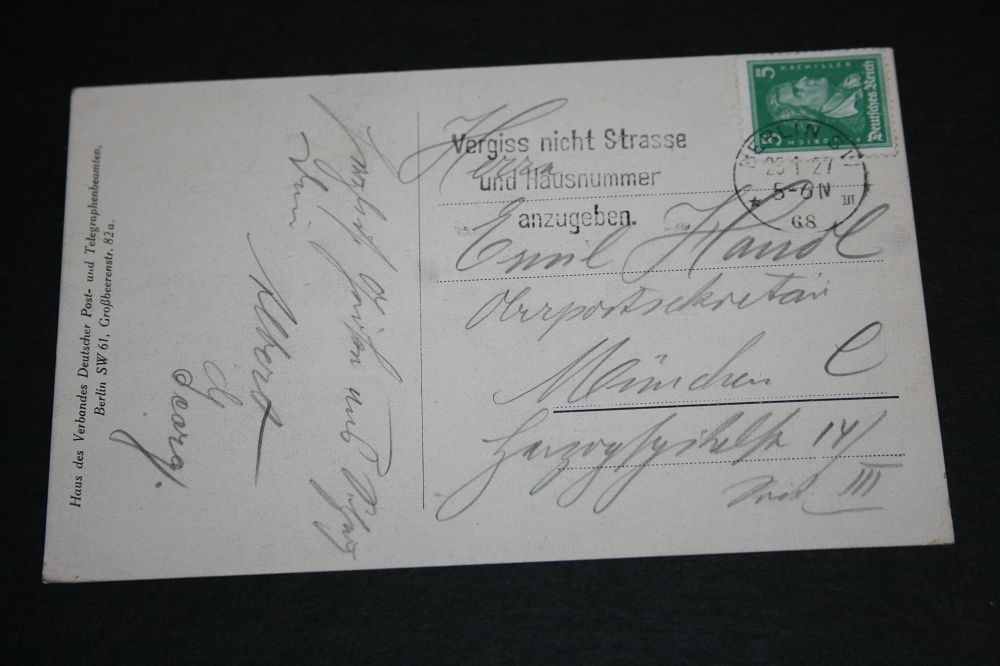 Haus des Verbandes Deutscher Post- und Telegraphenbeamten,
Berlin SW 61, Großbeerenstr. 82a.
und
Albert
Georg.
Vergiss nicht Strasse
und Hausnummer
anzugeben.
5 V. SCHILLER
Deutsches Reich
5
BERLIN SW
27
5-6 N
68 III
Herrn
Emil Handl
Oberpostsekretär
München C
Herzogspitalstr 14/
III